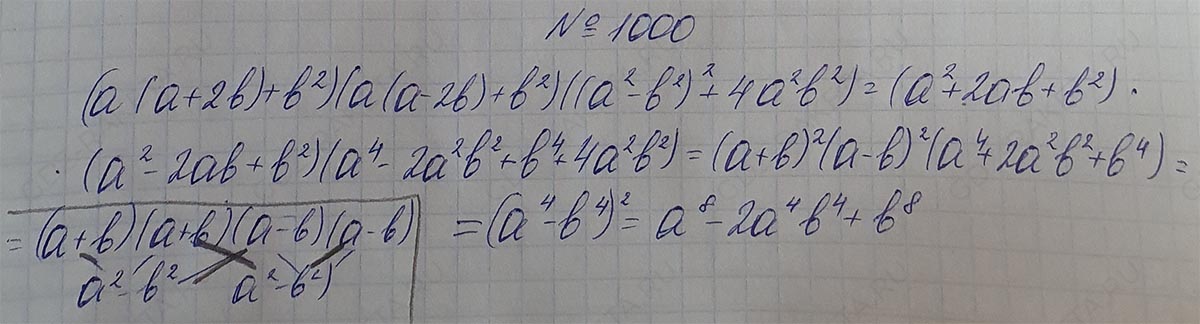 № 1000
(a(a+2b)+b²)(a(a-2b)+b²)((a²-b²)²+4a²b²)=(a²+2ab+b²)·
·(a²-2ab+b²)(a⁴-2a²b²+b⁴+4a²b²)=(a+b)²(a-b)²(a⁴+2a²b²+b⁴)=
=(a+b)(a+b)(a-b)(a-b) =(a⁴-b⁴)²=a⁸-2a⁴b⁴+b⁸
a²-b² a²-b²)